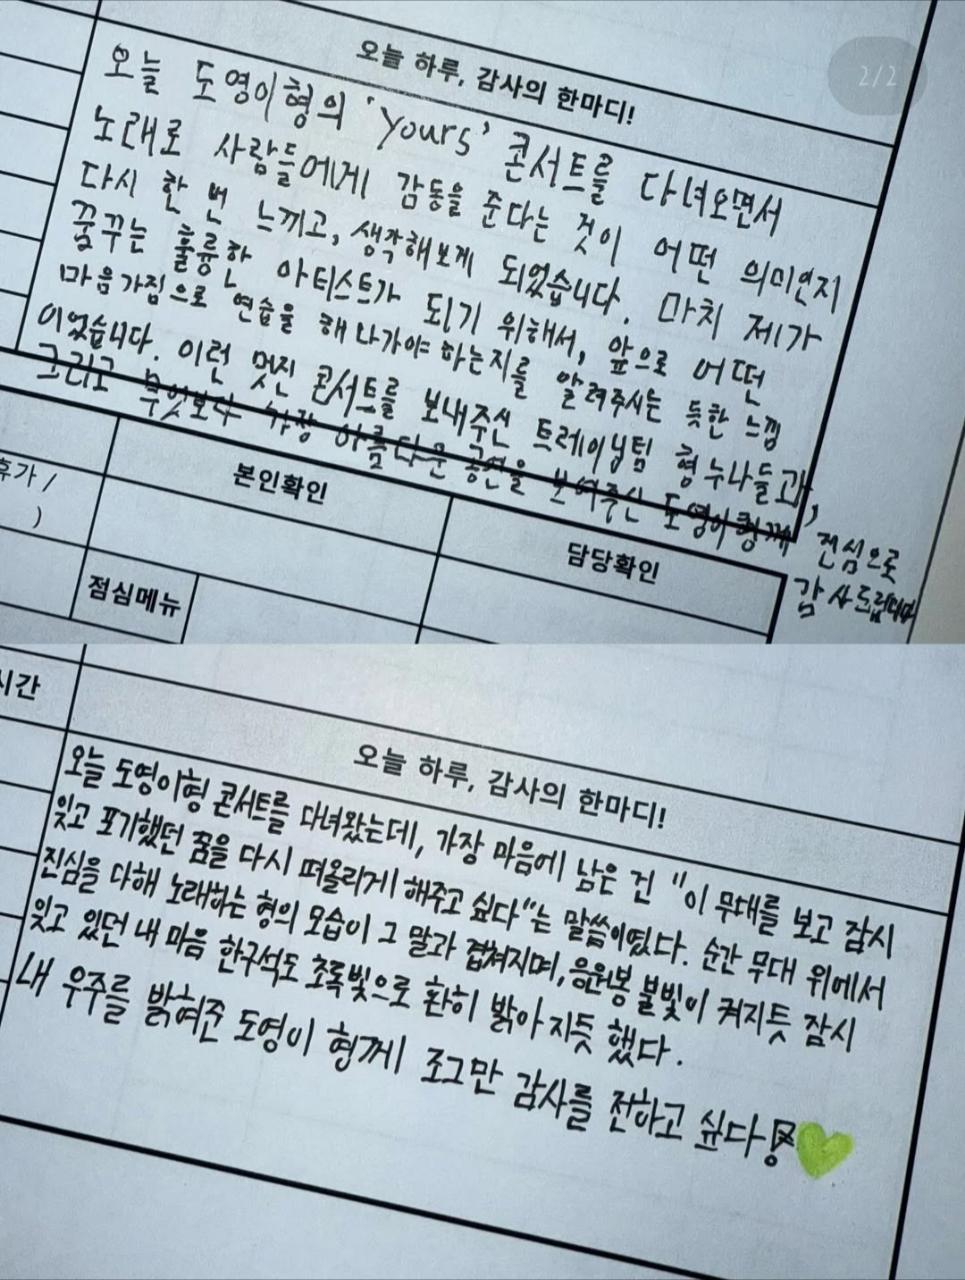 2/2
오늘 하루, 감사의 한마디!
오늘 도영이형의 'Yours' 콘서트를 다녀오면서
노래로 사람들에게 감동을 준다는 것이 어떤 의미인지
다시 한 번 느끼고, 생각해보게 되었습니다. 마치 제가
꿈꾸는 훌륭한 아티스트가 되기 위해서, 앞으로 어떤
마음가짐으로 연습을 해나가야 하는지를 알려주시는 듯한 느낌
이었습니다. 이런 멋진 콘서트를 보내주신 트레이닝팀 형누나들과,
그리고 무엇보다 가장 아름다운 공연을 보여주신 도영이형께 진심으로
감사드립니다
휴가 /
)
본인확인
담당확인
점심메뉴
시간
오늘 하루, 감사의 한마디!
오늘 도영이형 콘서트를 다녀왔는데, 가장 마음에 남은 건 "이 무대를 보고 잠시
잊고 포기했던 꿈을 다시 떠올리게 해주고 싶다"는 말씀이었다. 순간 무대 위에서
진심을 다해 노래하는 형의 모습이 그 말과 겹쳐지며, 응원봉 불빛이 켜지듯 잠시
잊고 있던 내 마음 한구석도 초록빛으로 환히 밝아지듯 했다.
내 우주를 밝혀준 도영이 형께 조그만 감사를 전하고 싶다!